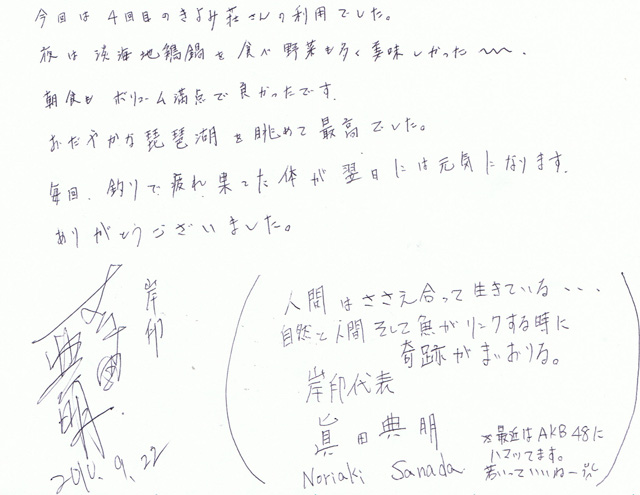 今回は4回目のきよみ荘さんの利用でした。
夜は淡海地鶏鍋を食べ野菜も多く美味しかった〜〜.
朝食もボリューム満点で良かったです.
おだやかな琵琶湖を眺めて最高でした。
毎回、釣りで疲れ果てた体が翌日には元気になります.
ありがとうございました。
岸印
2010.9.22
人間はささえ合って生きている・・・
自然と人間そして魚がリンクする時に
奇跡がまいおりる。
岸印代表
眞田典明
Noriaki Sanada
※最近はAKB48に
ハマッてます。
若いっていいねー